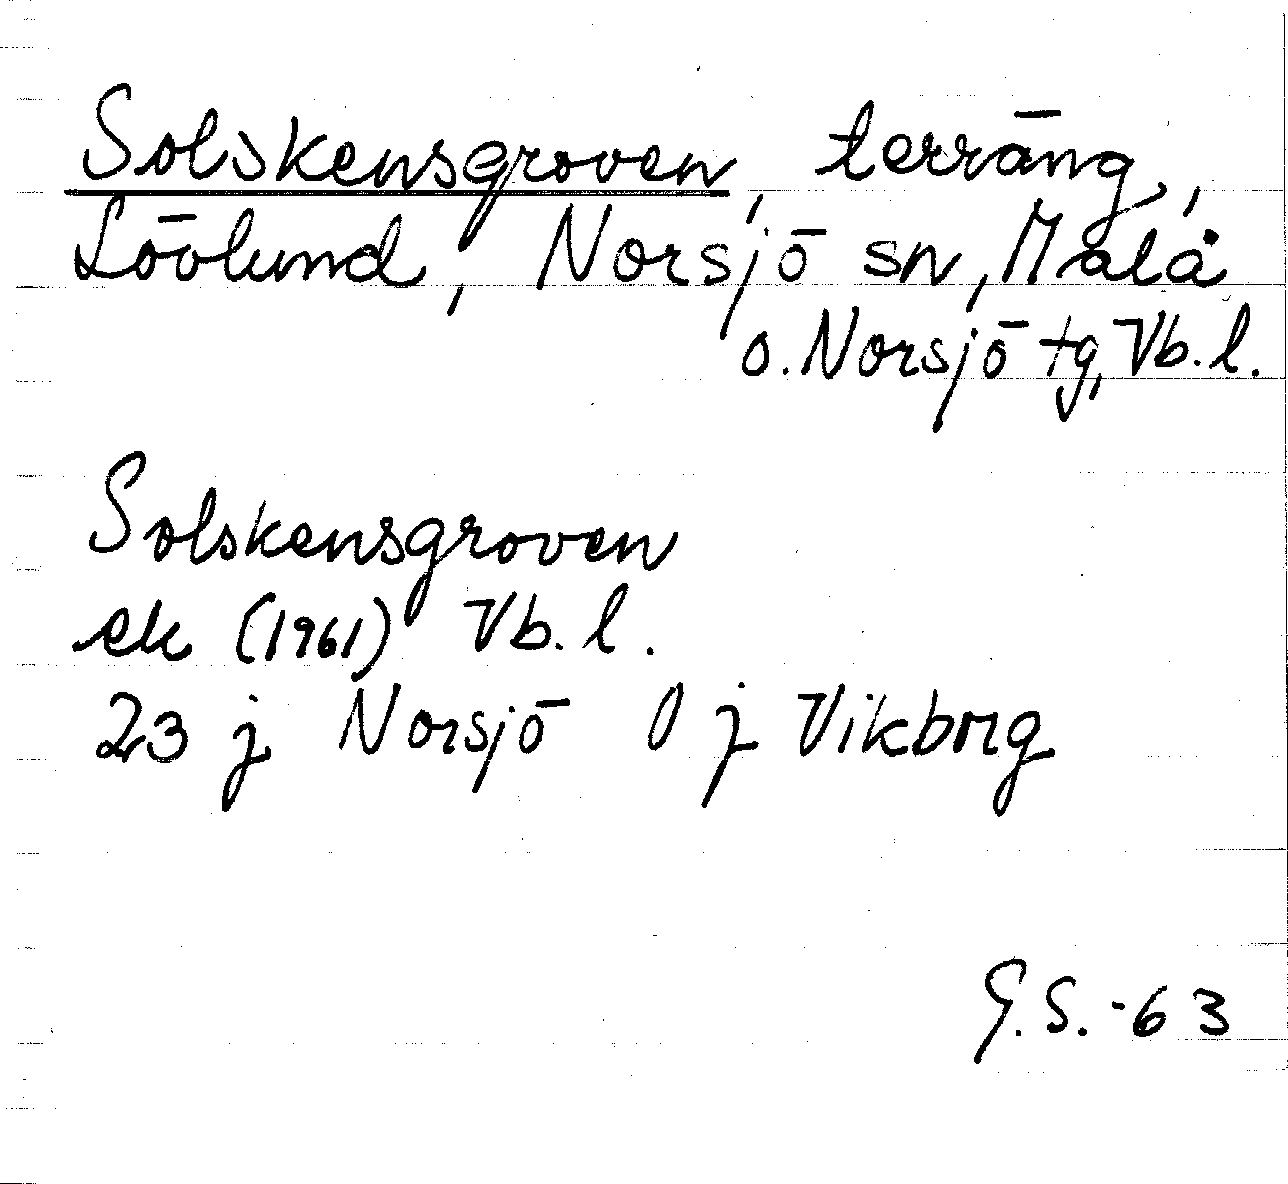 Solskensgroven, terräng,
Lövlund, Norsjö sn, Malå
o. Norsjö tg, Vb. l.
Solskensgroven
ek (1961) Vb. l.
23 j Norsjö 0 j Vikborg
G.S.-63